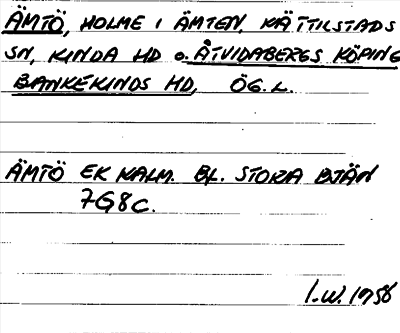 ÄMTÖ, HOLME I ÄMTEN, KÄTTILSTADS
SN, KINDA HD o. ÅTVIDABERGS KÖPING
BANKEKINDS HD, ÖG. L.
ÄMTÖ EK KALM. BL. STORA BJÄN
7G8c.
I.W. 1956